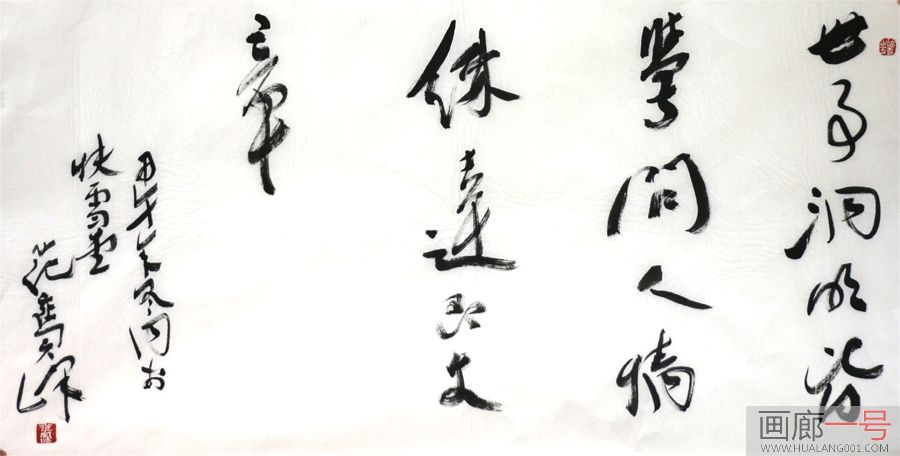 世事洞明皆
學問人情
練達即文
章
甲午年
快雪堂
范
画廊一号
WWW.HUALANG001.COM